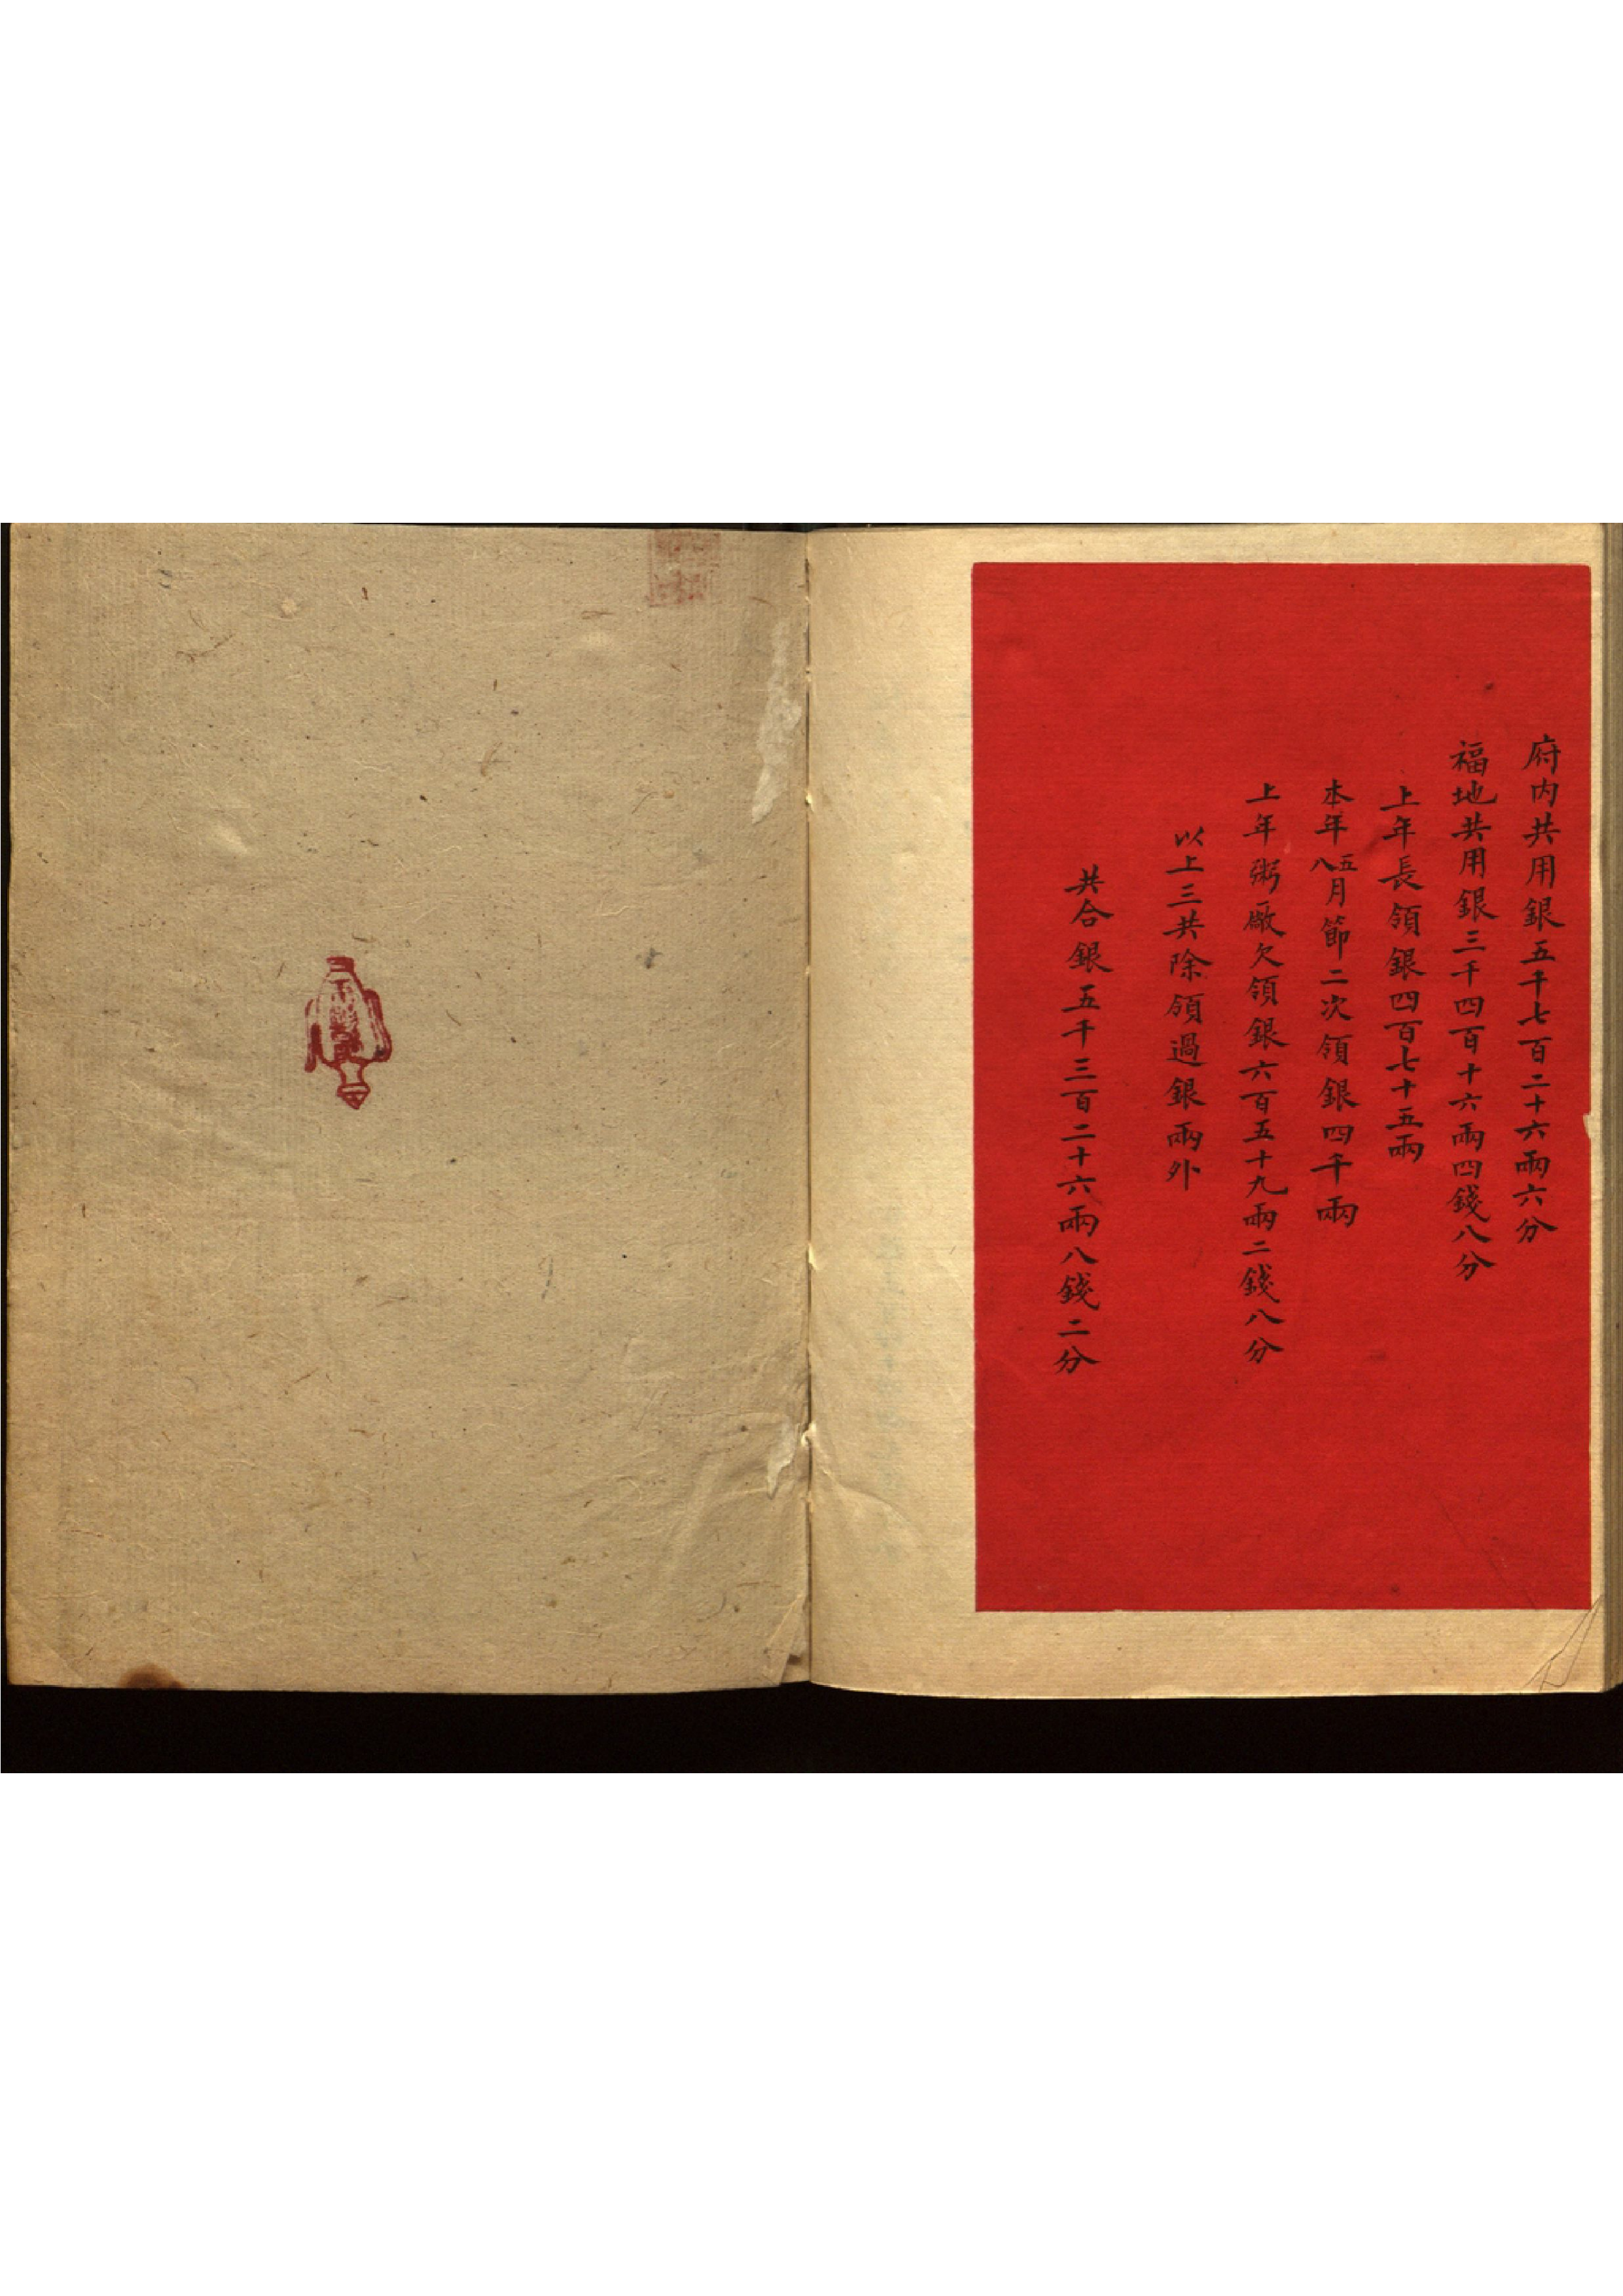 府内共用銀五千七百二十六兩六分
福地共用銀三千四百十六兩四錢八分
上年長領銀四百七十五兩
本年五八月節二次領銀四千兩
上年粥厰欠領銀六百五十九兩二錢八分
以上三共除領過銀兩外
共合銀五千三百二十六兩八錢二分